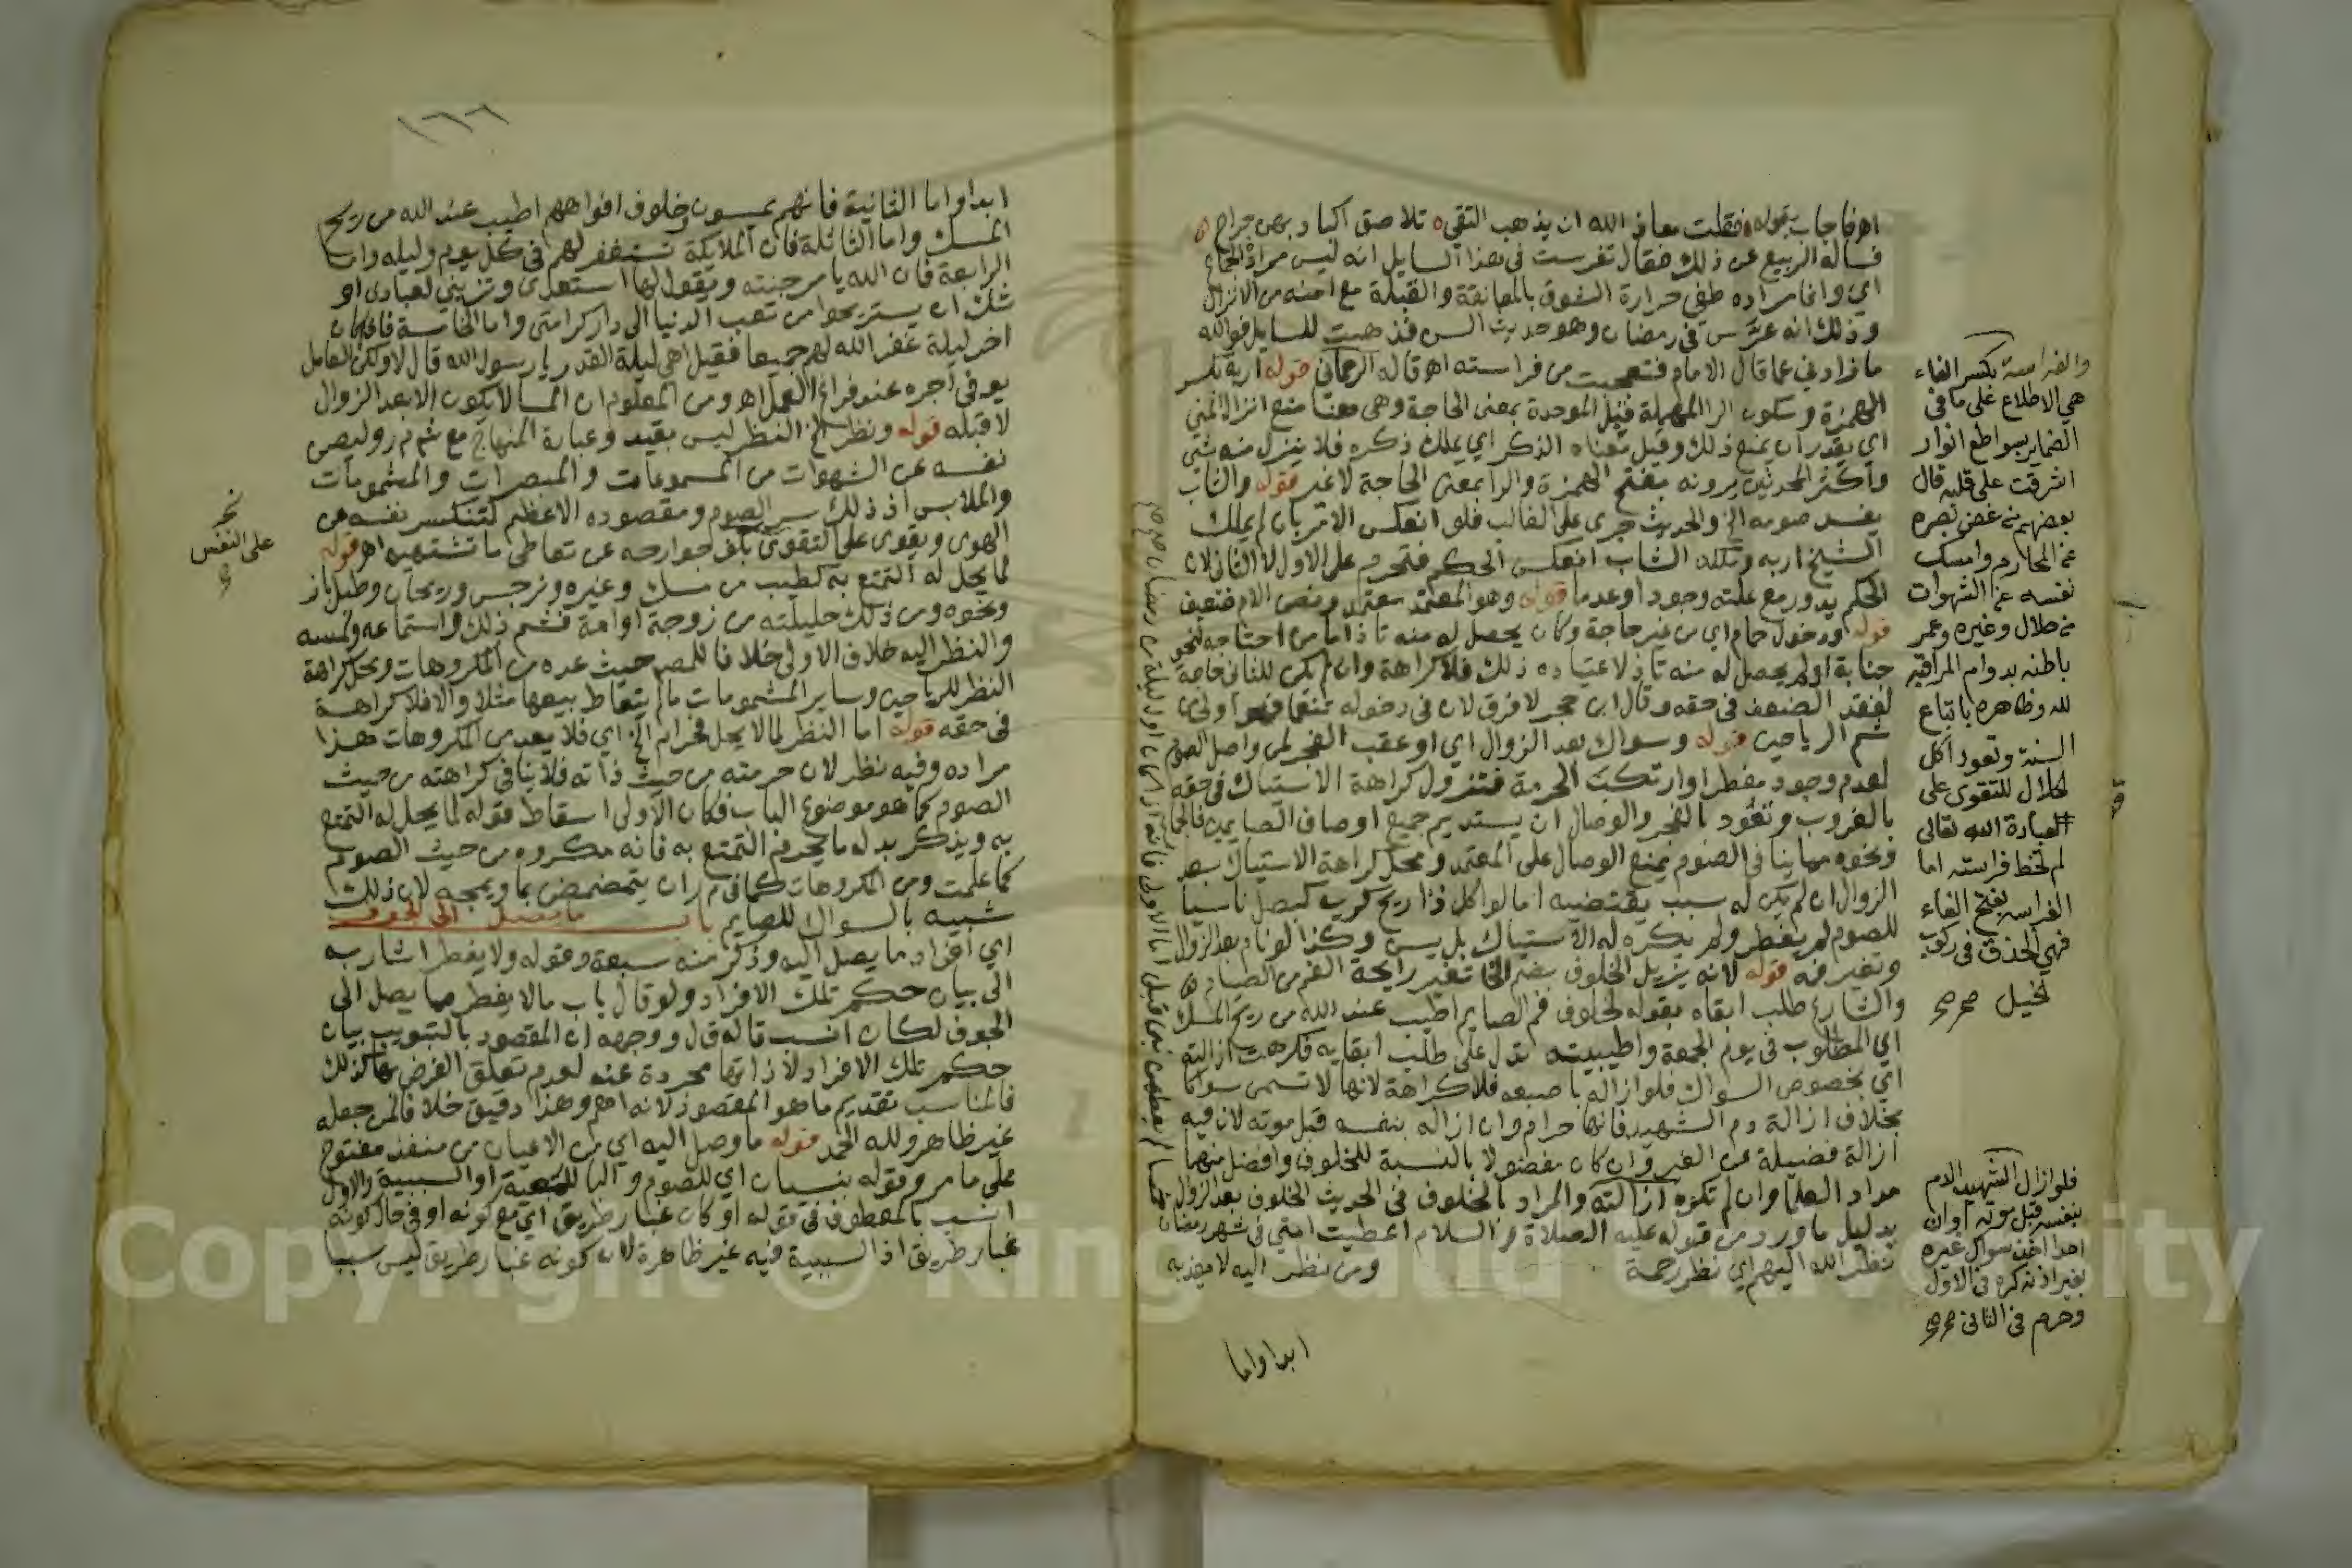 اهـ فاجاب بقوله فقلت معاذ الله ان يذهب التقى تلاصق اكباد بهن جراح
فساله الربيع عن ذلك فقال تفرست في هذا السايل انه ليس مراده الجماع
اي وانما مراده طفي حرارة الشوق بالمعانقة والقبلة مع امنه من الانزال
وذلك انه عرس في رمضان وهو حديث السن فذهبت للسايل فوالله
ما زادني عما قال الامام فتعجبت من فراسته اهـ قاله الرحماني قوله اربه بكسر
الهمزة وسكون الرا المهملة قبل الموحدة بمعنى الحاجة وهي هنا منع انزال المني
اي يقدر ان يمنع ذلك وقيل معناه الذكر اي يملك ذكره فلا ينزل منه شي
واكثر المحدثين يرونه بفتح الهمزة والرا بمعنى الحاجة لا غير قوله والشاب
يفسد صومه الخ والحديث جرى على الغالب فلو انعكس الامر بان لم يملك
الشيخ اربه وملكه الشاب انعكس الحكم فتحرم على الاول لا الثاني لان
الحكم يدور مع علته وجودا وعدما قوله وهو المعتمد معتمد ونص الام ضعيف
قوله ودخول حمام اي من غير حاجة وكان يحصل له منه تاذ اما من احتاجه لنحو
جنابة او لم يحصل له منه تاذ لاعتياده ذلك فلا كراهة وان لم يكن للثاني حاجة
لفقد الضعف في حقه وقال ابن حجر لا فرق لان في دخوله تنعما فهو اولى من
شم الرياحين قوله وسواك بعد الزوال اي او عقب الفجر لمن واصل الصوم
لعدم وجود مفطر او ارتكب الحرمة فتزول كراهة الاستياك في حقه
بالغروب وتعود بالفجر والوصال ان يستديم جميع اوصاف الصايمين فالجماع
ونحوه مما ينافي الصوم يمنع الوصال على المعتمد ومحل كراهة الاستياك بعد
الزوال ان لم يكن له سبب يقتضيه اما لو اكل ذا ريح كريه كبصل ناسيا
للصوم لم يفطر ولم يكره له الاستياك بل يسن وكذا لو نام بعد الزوال
وتغير فمه قوله لانه يزيل الخلوف بضم الخا تغير رايحة الفم من الصيام
والشارع طلب ابقاه بقوله لخلوف فم الصايم اطيب عند الله من ريح المسك
اي المطلوب في يوم الجمعة واطيبيته تدل على طلب ابقايه فكرهت ازالته
اي بخصوص السواك فلو ازاله باصبعه فلا كراهة لانها لا تسمى سواكا
بخلاف ازالة دم الشهيد فانها حرام وان ازاله بنفسه قبل موته لان فيه
ازالة فضيلة عن الغير وان كان مفضولا بالنسبة للخلوف وافضل منهما
مداد العلما وان لم تكره ازالته والمراد بالخلوف في الحديث الخلوف بعد الزوال
بدليل ما ورد من قوله عليه الصلاة والسلام اعطيت امتي في شهر رمضان
نظر الله اليهم اي نظر رحمة ومن نظر اليه لا يعذبه
ابدا واما
خمسا لم يعطهن نبي قبلي اما الاولى فانه اذا كان اول ليلة من رمضان
والفراسة بكسر الفاء
هي الاطلاع على ما في
الضماير بسواطع انوار
اشرقت على قلبه قال
بعضهم من غض بصره
عن المحارم وامسك
نفسه عن الشهوات
من حلال وغيره وعمر
باطنه بدوام المراقبة
لله وظاهره باتباع
السنة وتعود اكل
الحلال للتقوى على
العبادة الله تعالى
لم تخط فراسته اما
الفراسه بفتح الفاء
فهي الحذق في ركوب
الخيل
فلو ازال الشهيد الدم
بنفسه قبل موته او ان
احدا اخذ سواك غيره
بغير اذنه كره في الاول
وحرم في الثاني
١٦٦
ابدا واما الثانية فانهم يمسون وخلوف افواههم اطيب عند الله من ريح
المسك واما الثالثة فان الملايكة تستغفر لهم في كل يوم وليله واما
الرابعة فان الله يامر جنته ويقول لها استعدي وتزيني لعبادي او
شك ان يستريحوا من تعب الدنيا الى دار كرامتي واما الخامسة فاذا كان
اخر ليلة غفر الله لهم جميعا فقيل اهي ليلة القدر يا رسول الله قال لا ولكن العامل
يوفى اجره عند فراغ العمل اهـ ومن المعلوم ان المسا لا يكون الا بعد الزوال
لا قبله قوله ونظر الخ النظر ليس بقيد وعبارة المنهاج مع شم م ر وليصن
نفسه عن الشهوات من المسموعات والمبصرات والمشمومات
والملابس اذ ذلك سر الصوم ومقصوده الاعظم لتنكسر نفسه عن
الهوى ويقوى على التقوى بكف جوارحه عن تعاطي ما تشتهيه اهـ قوله
لما يحل له التمتع به كطيب من مسك وغيره ونرجس وريحان وطبل باز
ونحوه ومن ذلك حليلته من زوجة او امة فشم ذلك واستماعه ولمسه
والنظر اليه خلاف الاولى خلافا للمص حيث عده من المكروهات ومحل كراهة
النظر للرياحين وساير المشمومات ما لم يتعاط بيعها مثلا والا فلا كراهة
في حقه قوله اما النظر لما لا يحل فحرام الخ اي فلا يعد من المكروهات هذا
مراده وفيه نظر لان حرمته من حيث ذاته فلا ينافي كراهته من حيث
الصوم كما هو موضوع الباب فكان الاولى اسقاط قوله لما يحل له التمتع
به ويذكر بدله ما يحرم التمتع به فانه مكروه من حيث الصوم
كما علمت ومن المكروهات كما في م ر ان يتمضمض بما ويمجه لان ذلك
شبيه بالسواك للصايم باب ما يصل الى الجوف
اي افراد ما يصل اليه وذكر منه سبعة وقوله ولا يفطر اشار به
الى بيان حكم تلك الافراد ولو قال باب ما لا يفطر مما يصل الى
الجوف لكان انسب قاله ق ل ووجهه ان المقصود بالتبويب بيان
حكم تلك الافراد لا ذاتها مجردة عنه لعدم تعلق الغرض بها كذلك
فالمناسب تقديم ما هو المقصود لانه اهم وهذا دقيق خلافا لمن جعله
غير ظاهر ولله الحمد قوله ما وصل اليه اي من الاعيان من منفذ مفتوح
على ما مر وقوله بنسيان اي للصوم والبا للمعية او السببية والاول
انسب بالمعطوف في قوله او كان غبار طريق اي مع كونه او في حال كونه
غبار طريق اذ السببية فيه غير ظاهرة لان كونه غبار طريق ليس سببا
على النفس
Copyright © King Saud University